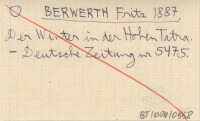 BERWERTH Fritz 1887.
Der Winter in der Hohen Tatra.
– Deutsche Zeitung nr 5475.
BT/009/0558